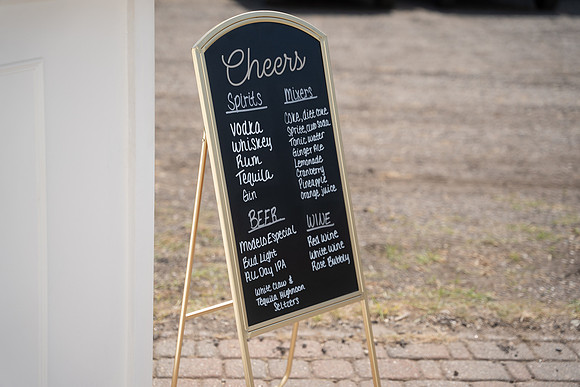 Cheers
Spirits
Vodka
Whiskey
Rum
Tequila
Gin
Mixers
Coke, diet coke
Sprite, club soda
Tonic water
Ginger Ale
Lemonade
Cranberry
Pineapple
orange juice
BEER
Modelo Especial
Bud Light
All Day IPA
White Claw &
Tequila Highnoon
Seltzers
WINE
Red Wine
White Wine
Rosé Bubbly